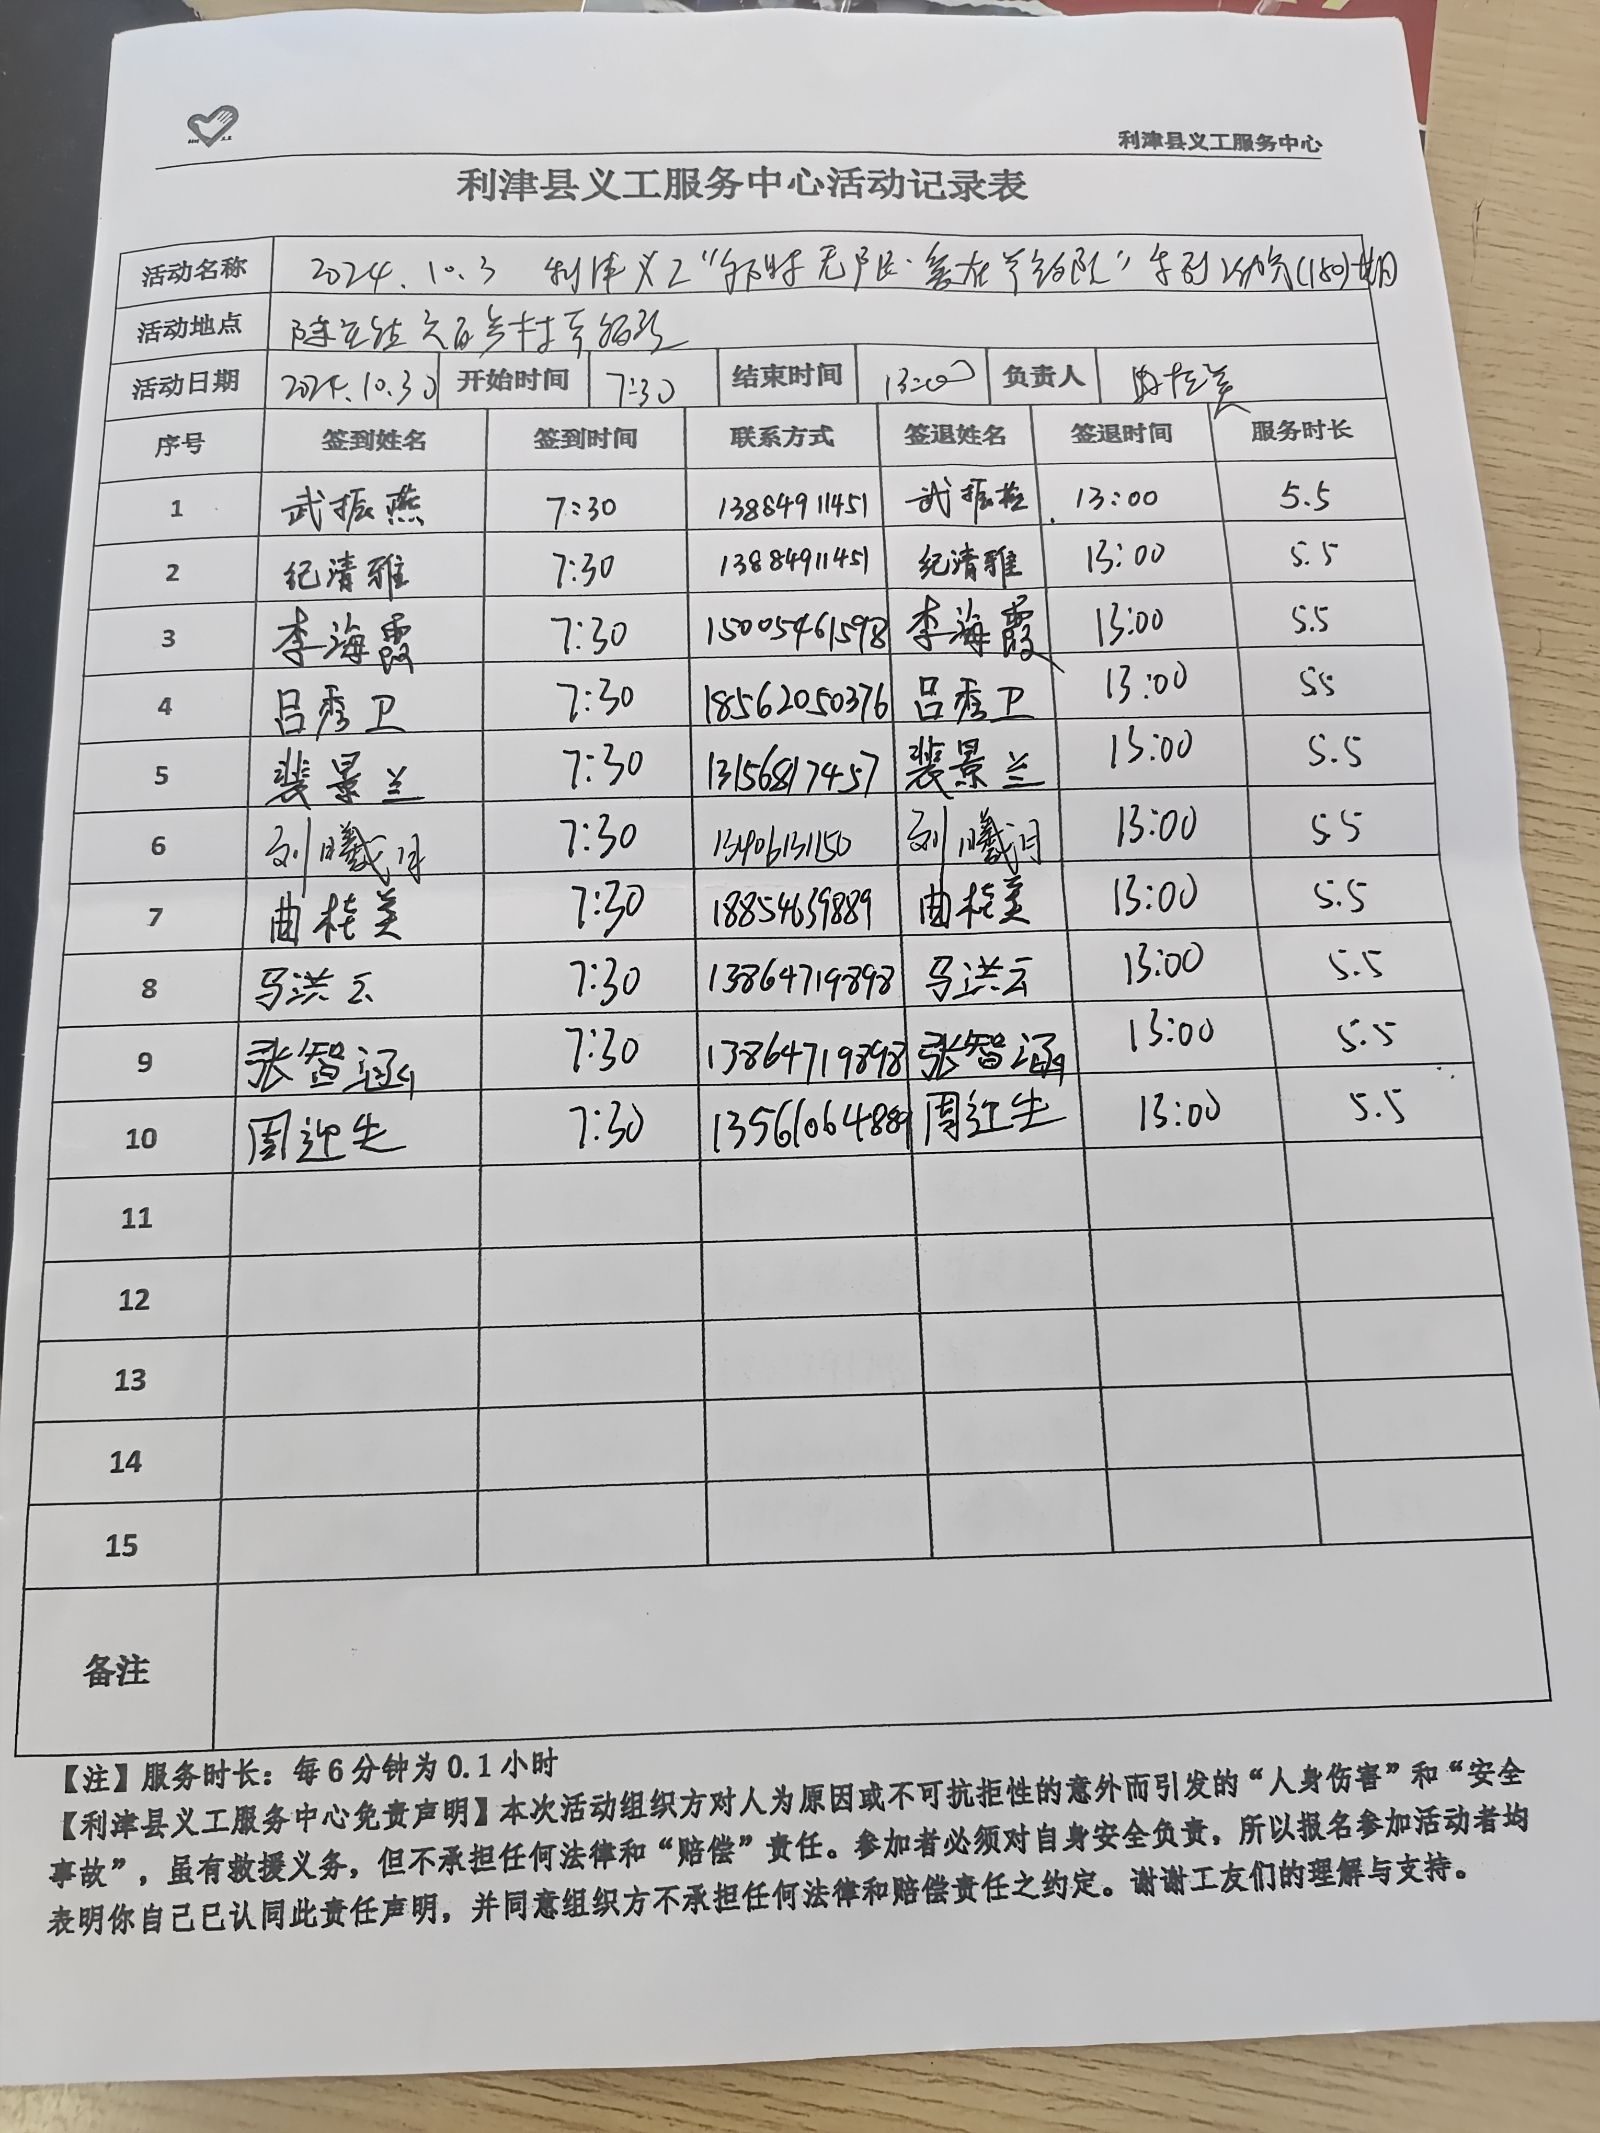 利津县义工服务中心
利津县义工服务中心活动记录表
活动名称 2024.10.3 利津义工“ 幸福院” (180)期
活动地点 村幸福院
活动日期 2024.10.30 开始时间 7:30 结束时间 13:00 负责人 曲桂美
序号 签到姓名 签到时间 联系方式 签退姓名 签退时间 服务时长
1 武振燕 7:30 13884911451 武振燕 13:00 5.5
2 纪清雅 7:30 13884911451 纪清雅 13:00 5.5
3 李海霞 7:30 15005461598 李海霞 13:00 5.5
4 吕秀卫 7:30 18562050376 吕秀卫 13:00 55
5 裴景兰 7:30 13156817457 裴景兰 13:00 5.5
6 刘曦月 7:30 13406131150 刘曦月 13:00 5.5
7 曲桂美 7:30 18854639889 曲桂美 13:00 5.5
8 马洪云 7:30 13864719898 马洪云 13:00 5.5
9 张智涵 7:30 13864719898 张智涵 13:00 5.5
10 周迎先 7:30 13561064889 周迎先 13:00 5.5
11
12
13
14
15
备注
【注】服务时长：每6分钟为0.1小时
【利津县义工服务中心免责声明】本次活动组织方对人为原因或不可抗拒性的意外而引发的“人身伤害”和“安全
事故”，虽有救援义务，但不承担任何法律和“赔偿”责任。参加者必须对自身安全负责，所以报名参加活动者均
表明你自己已认同此责任声明，并同意组织方不承担任何法律和赔偿责任之约定。谢谢工友们的理解与支持。